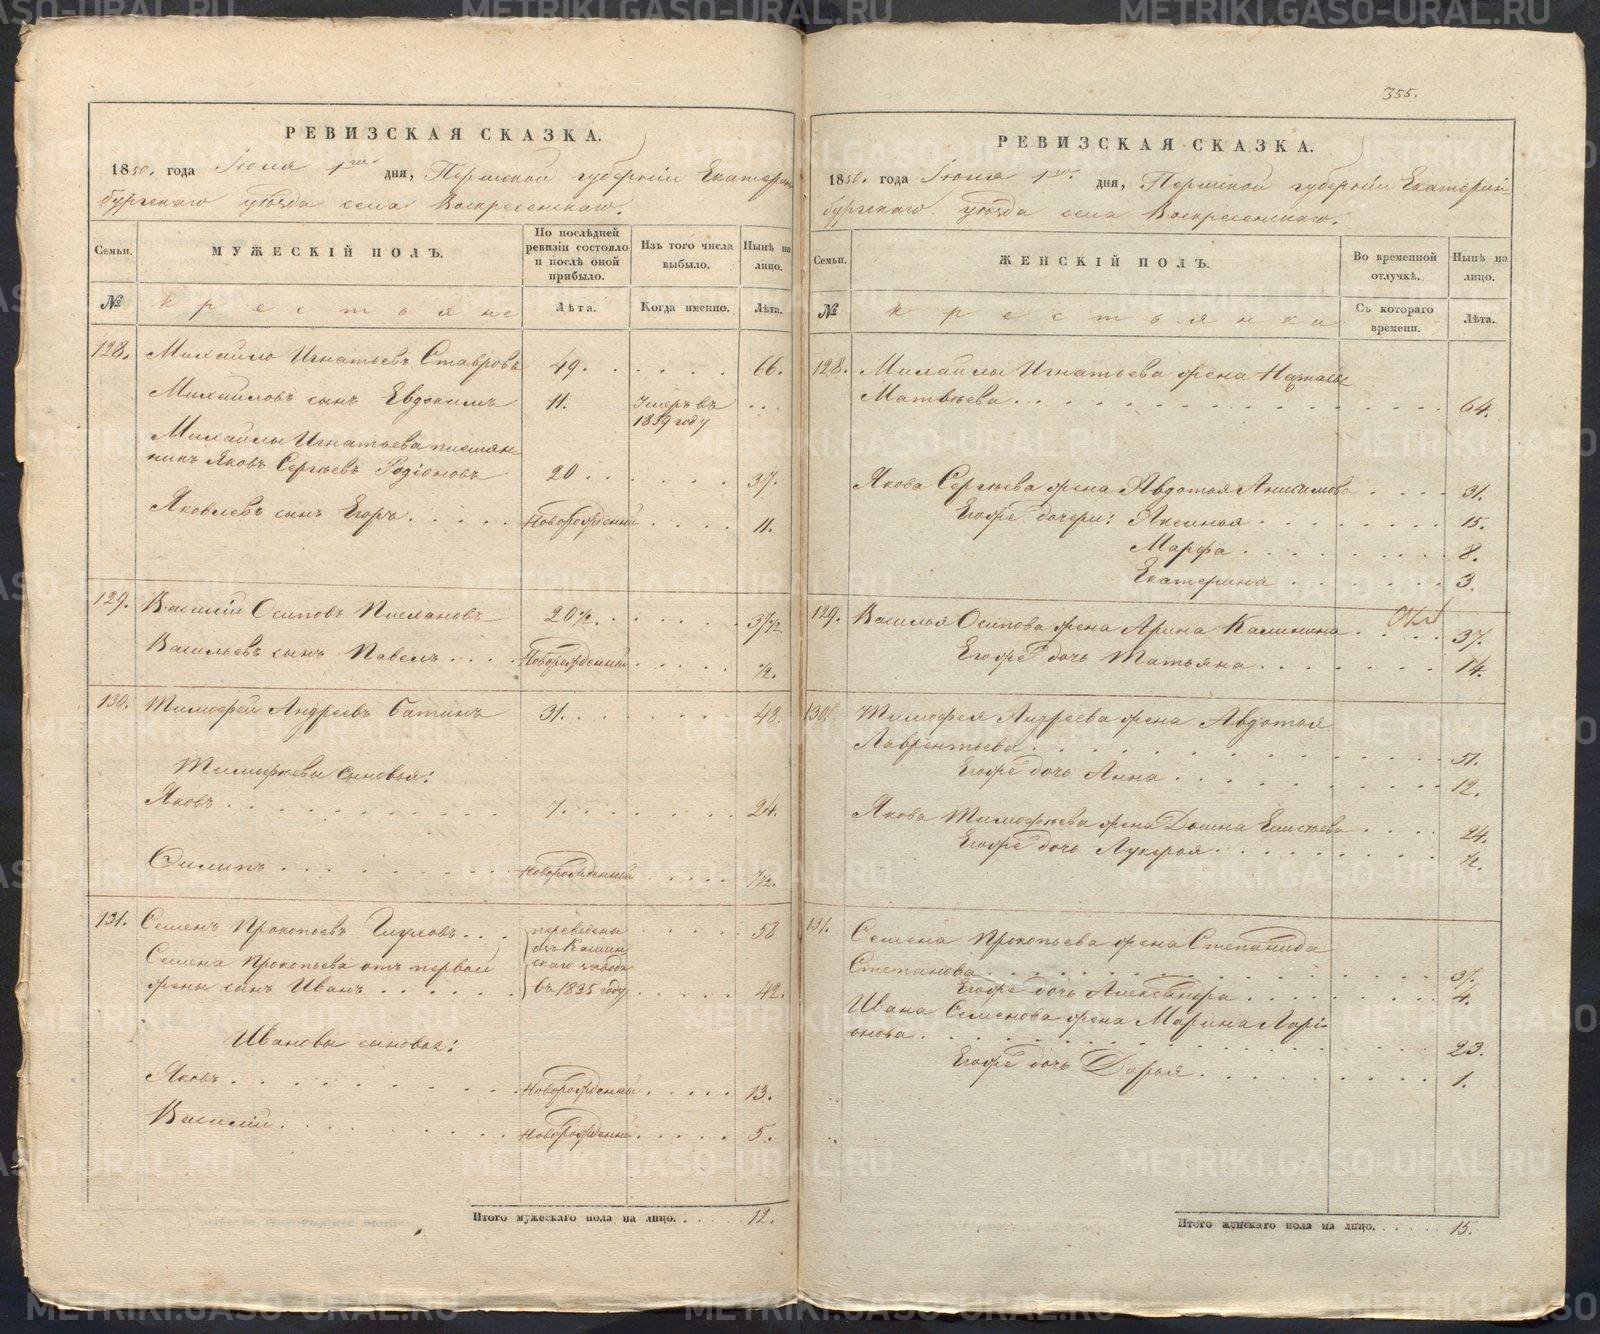 355.
РЕВИЗСКАЯ СКАЗКА.
1850. года Іюля 1го дня, Пермской губерніи Екатерин
бургскаго уѣзда села Воскресенскаго.
Семьи. МУЖЕСКІЙ ПОЛЪ. По послѣдней ревизіи состояло и послѣ оной прибыло. Изъ того числа выбыло. Нынѣ на лицо.
№ крестьяне Лѣта. Когда именно. Лѣта.
128. Михайло Игнатьевъ Ставровъ 49. 66.
Михайловъ сынъ Евдокимъ 11. Умеръ въ 1839 году
Михайлы Игнатьева племян
никъ Яковъ Сергѣевъ Родіоновъ 20 37.
Яковлевъ сынъ Егоръ Новорожденный 11.
129. Василій Осиповъ 20½ 37½
Васильевъ сынъ Павелъ Новорожденный ½.
130. Тимофей Андреевъ Батинъ 31. 48.
Тимофѣевы сыновья:
Яковъ 7. 24.
Филипъ Новорожденный 7½.
131. Семенъ Прокопьевъ Глуховъ 58
Семена Прокопьева отъ первой
жены сынъ Иванъ 42.
переведены
скаго завода
въ 1835 году
Ивановы сыновья:
Яковъ Новорожденный 13.
Василій Новорожденный 5.
Итого мужескаго пола на лицо. 12.
РЕВИЗСКАЯ СКАЗКА.
1850. года Іюля 1го дня, Пермской губерніи Екатерин
бургскаго уѣзда села Воскресенскаго.
Семьи. ЖЕНСКІЙ ПОЛЪ. Во временной отлучкѣ. Нынѣ на лицо.
№ крестьянки Съ котораго времени. Лѣта.
128. Михайлы Игнатьева жена Наталья
Матвѣева 64.
Якова Сергѣева жена Авдотья Анисимова 31.
Егоже дочери: Аксинья 15.
Марфа 8.
Екатерина 3.
129. Василья Осипова жена Арина Калинина 37.
Егоже дочь Татьяна 14.
130. Тимофея Андреева жена Авдотья
Лаврентьева 51.
Егоже дочь Анна 12.
Якова Тимофѣева жена Домна Елисѣева 24.
Егоже дочь Лукерья ½.
131. Семена Прокопьева жена Степанида
Степанова 37.
Егоже дочь Александра 4.
Ивана Семенова жена Марина Ларі
онова 23.
Егоже дочь Дарья 1.
Итого женскаго пола на лицо. 15.
METRIKI.GASO-URAL.RU